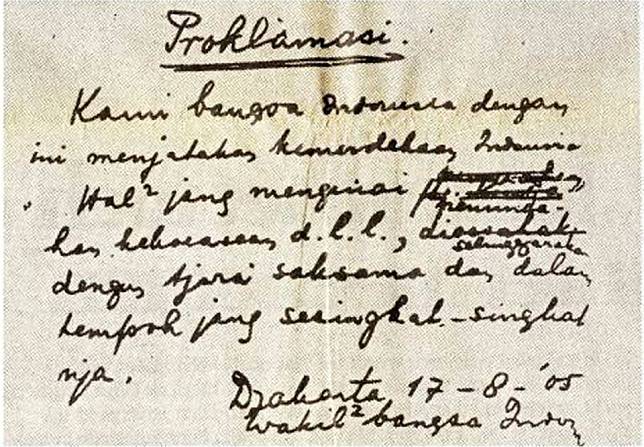 Proklamasi.
Kami bangsa Indonesia dengan
ini menjatakan kemerdekaan Indonesia
. Hal² jang mengenai
pemindah-
han kekoeasaan d.l.l., dioesahak
selenggaraka
dengan tjara saksama dan dalam
tempoh jang sesingkat-singkat
nja.
Djakarta, 17 - 8 - '05
Wakil² bangsa Indon